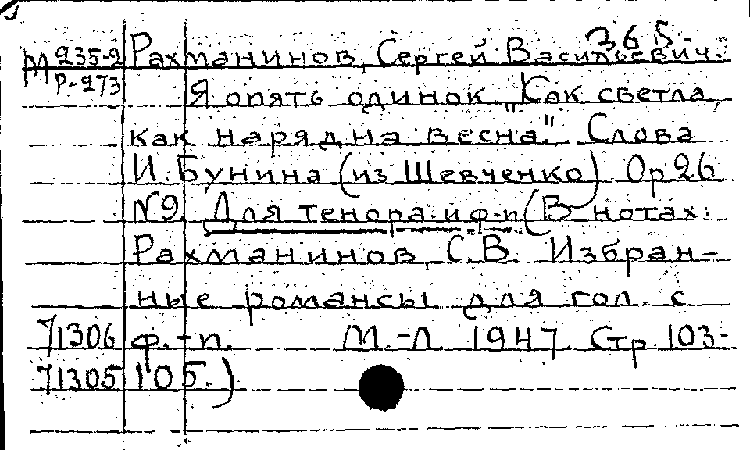 365-
М 235-2 Рахманинов, Сергей Васильевич.
Р-273 Я опять одинок „Как светла,
как нарядна весна". Слова
И. Бунина (из Шевченко) Ор 26
№9. Для тенора и ф-п (В нотах:
Рахманинов, С.В. Избран-
ные романсы для гол. с
71306 ф.-п. М.-Л 1947 Стр 103-
71305 105.)